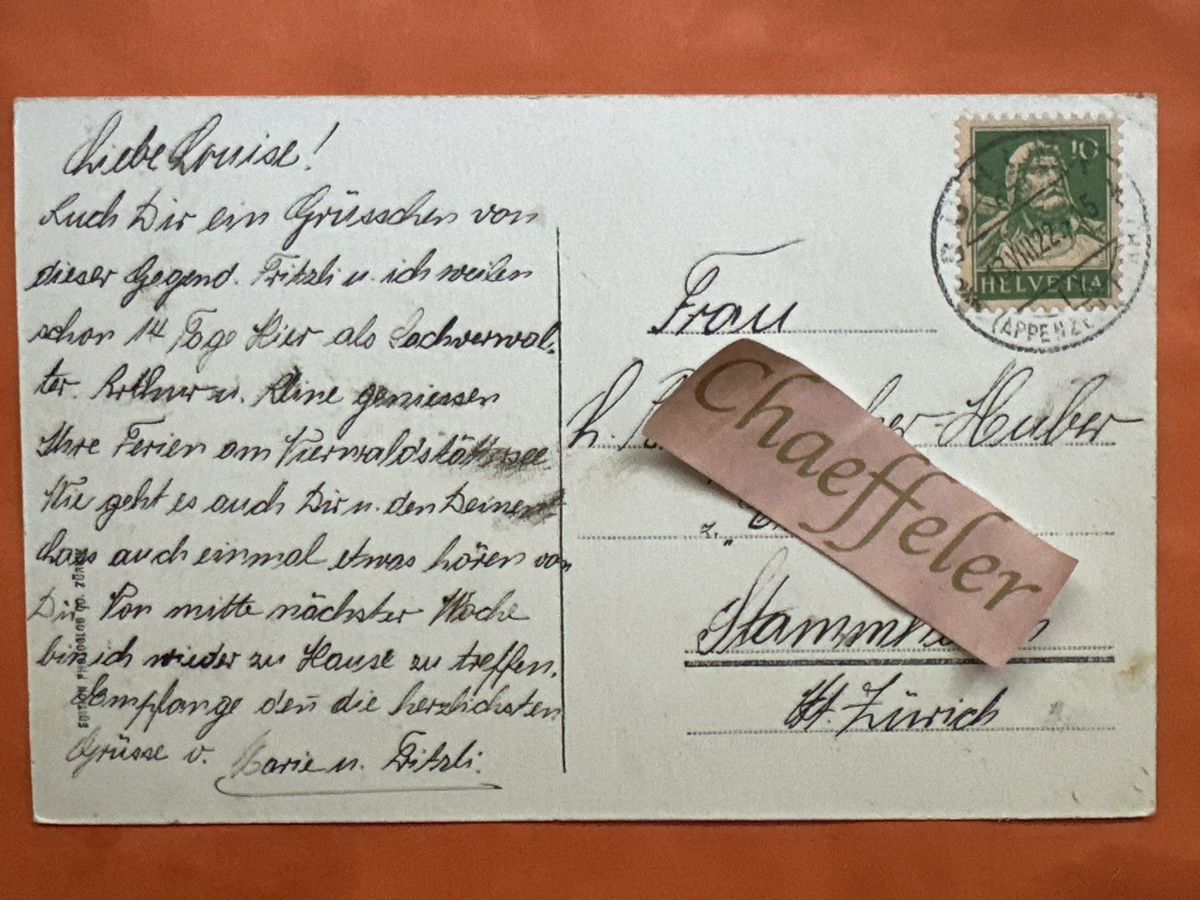 Liebe Louise!
Auch Dir ein Grüsschen von
dieser Gegend. Fritzli u. ich weilen
schon 14 Tage Hier als Sachverwal-
ter. Arthur u. Aline geniessen
Ihre Ferien am Vierwaldstättersee
Wie geht es auch Dir u. den Deinen
Lass auch einmal etwas hören von
Dir. Von mitte nächster Woche
bin ich wieder zu Hause zu treffen.
Empfange den̄ die herzlichsten
Grüsse v. Marie u. Fritzli.
EDITION PHOTOGLOB CO. ZÜRICH
10
HELVETIA
BÜHLER
13.VIII.22
(APPENZELL
Frau
Huber
z. "
Chaeffeler
Kt. Zürich